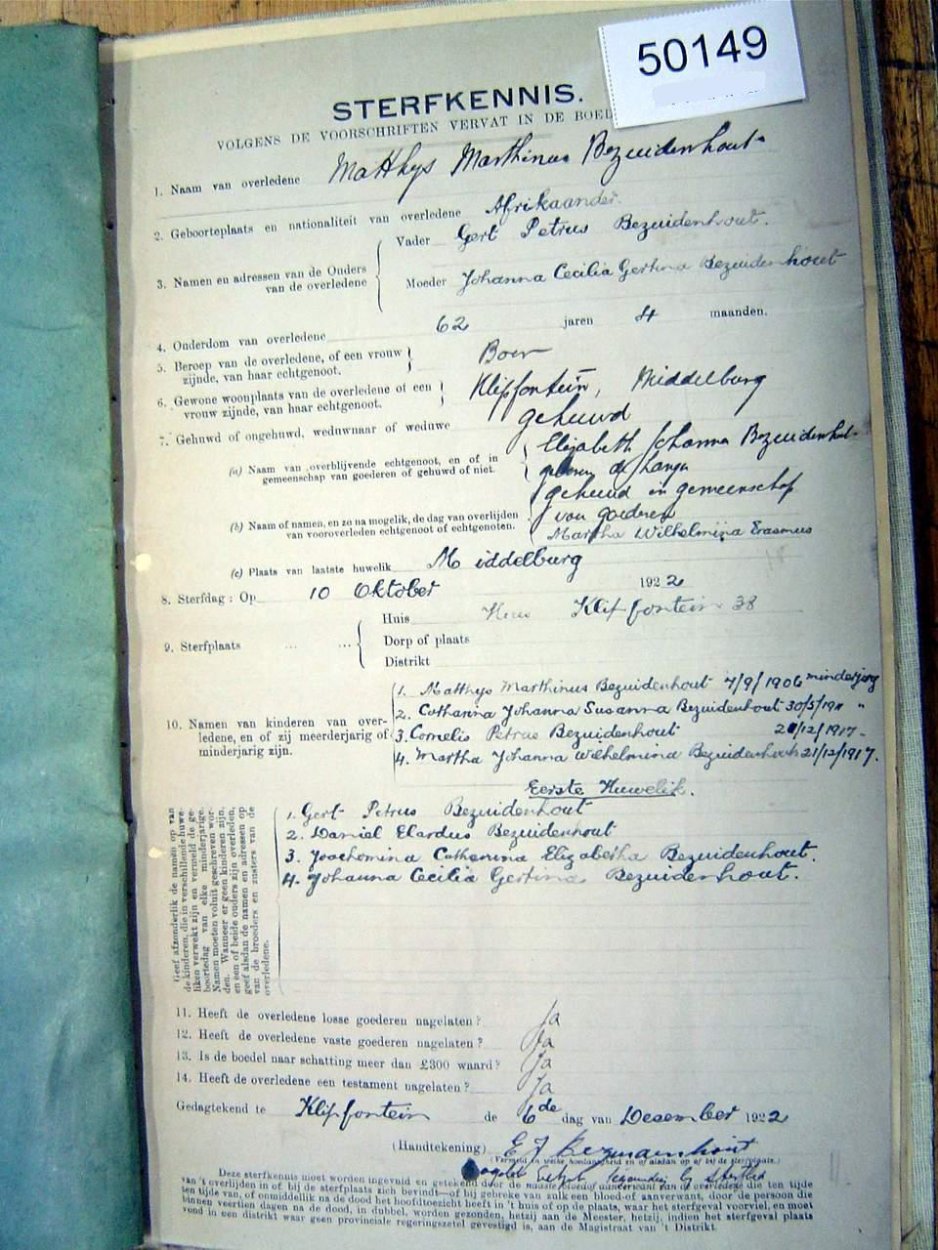 50149
STERFKENNIS.
VOLGENS DE VOORSCHRIFTEN VERVAT IN DE BOED
1. Naam van overledene Matthys Marthinus Bezuidenhout
2. Geboorteplaats en nationaliteit van overledene Afrikaander.
3. Namen en adressen van de Ouders van de overledene
Vader Gert Petrus Bezuidenhout.
Moeder Johanna Cecilia Gertina Bezuidenhout
4. Onderdom van overledene 62 jaren 4 maanden.
5. Beroep van de overledene, of een vrouw
zijnde, van haar echtgenoot.
Boer
6. Gewone woonplaats van de overledene of een
vrouw zijnde, van haar echtgenoot.
Klipfontein, Middelburg
7. Gehuwd of ongehuwd, weduwnaar of weduwe gehuwd
(a) Naam van overblijvende echtgenoot, en of in
gemeenschap van goederen of gehuwd of niet.
Elizabeth Johanna Bezuidenhout
geboren de Lange
gehuwd in gemeenschap
van goederen
(b) Naam of namen, en zo na mogelik, de dag van overlijden
van vooroverleden echtgenoot of echtgenoten.
Martha Wilhelmina Erasmus
(c) Plaats van laatste huwelik Middelburg
8. Sterfdag: Op 10 Oktober 1922
9. Sterfplaats ... ...
Huis Huis Klipfontein 38
Dorp of plaats
Distrikt
10. Namen van kinderen van over-
ledene, en of zij meerderjarig of
minderjarig zijn.
1. Matthys Marthinus Bezuidenhout 7/9/1906 minderjarig
2. Catharina Johanna Susanna Bezuidenhout 30/5/1911 "
3. Cornelis Petrus Bezuidenhout 21/12/1917 -
4. Martha Johanna Wilhelmina Bezuidenhout 21/12/1917.
Eerste Huwelik.
Geef afzonderlik de namen op van
de kinderen, die in verschillende huwe-
liken verwekt zijn en vermeld de ge-
boortedag van elke minderjarige.
Namen moeten voluit geschreven wor-
den. Wanneer er geen kinderen zijn,
en een of beide ouders zijn overleden,
geef alsdan de namen en adressen op
van de broeders en zusters van de
overledene.
1. Gert Petrus Bezuidenhout
2. Daniel Elardus Bezuidenhout
3. Joachemina Catharina Elizabetha Bezuidenhout.
4. Johanna Cecilia Gertina Bezuidenhout.
11. Heeft de overledene losse goederen nagelaten? Ja
12. Heeft de overledene vaste goederen nagelaten? Ja
13. Is de boedel naar schatting meer dan £300 waard? Ja
14. Heeft de overledene een testament nagelaten? Ja
Gedagtekend te Klipfontein de 6de dag van Desember 1922
(Handtekening) E J Bezuidenhout
(Vermeld in welke hoedanigheid en of alsdan op of bij de sterfplaats.)
Deze sterfkennis moet worden ingevuld en getekend door de naaste bloed of aanverwant van de overledene die ten tijde
van 't overlijden in of bij de sterfplaats zich bevindt—of bij gebreke van zulk een bloed-of aanverwant, door de persoon die
ten tijde van, of onmiddellik na de dood het hoofdtoezicht heeft in 't huis of op de plaats, waar het sterfgeval voorviel, en moet
binnen veertien dagen na de dood, in dubbel, worden gezonden, hetzij aan de Meester, hetzij, indien het sterfgeval plaats
vond in een distrikt waar geen provinciale regeringszetel gevestigd is, aan de Magistraat van 't Distrikt.